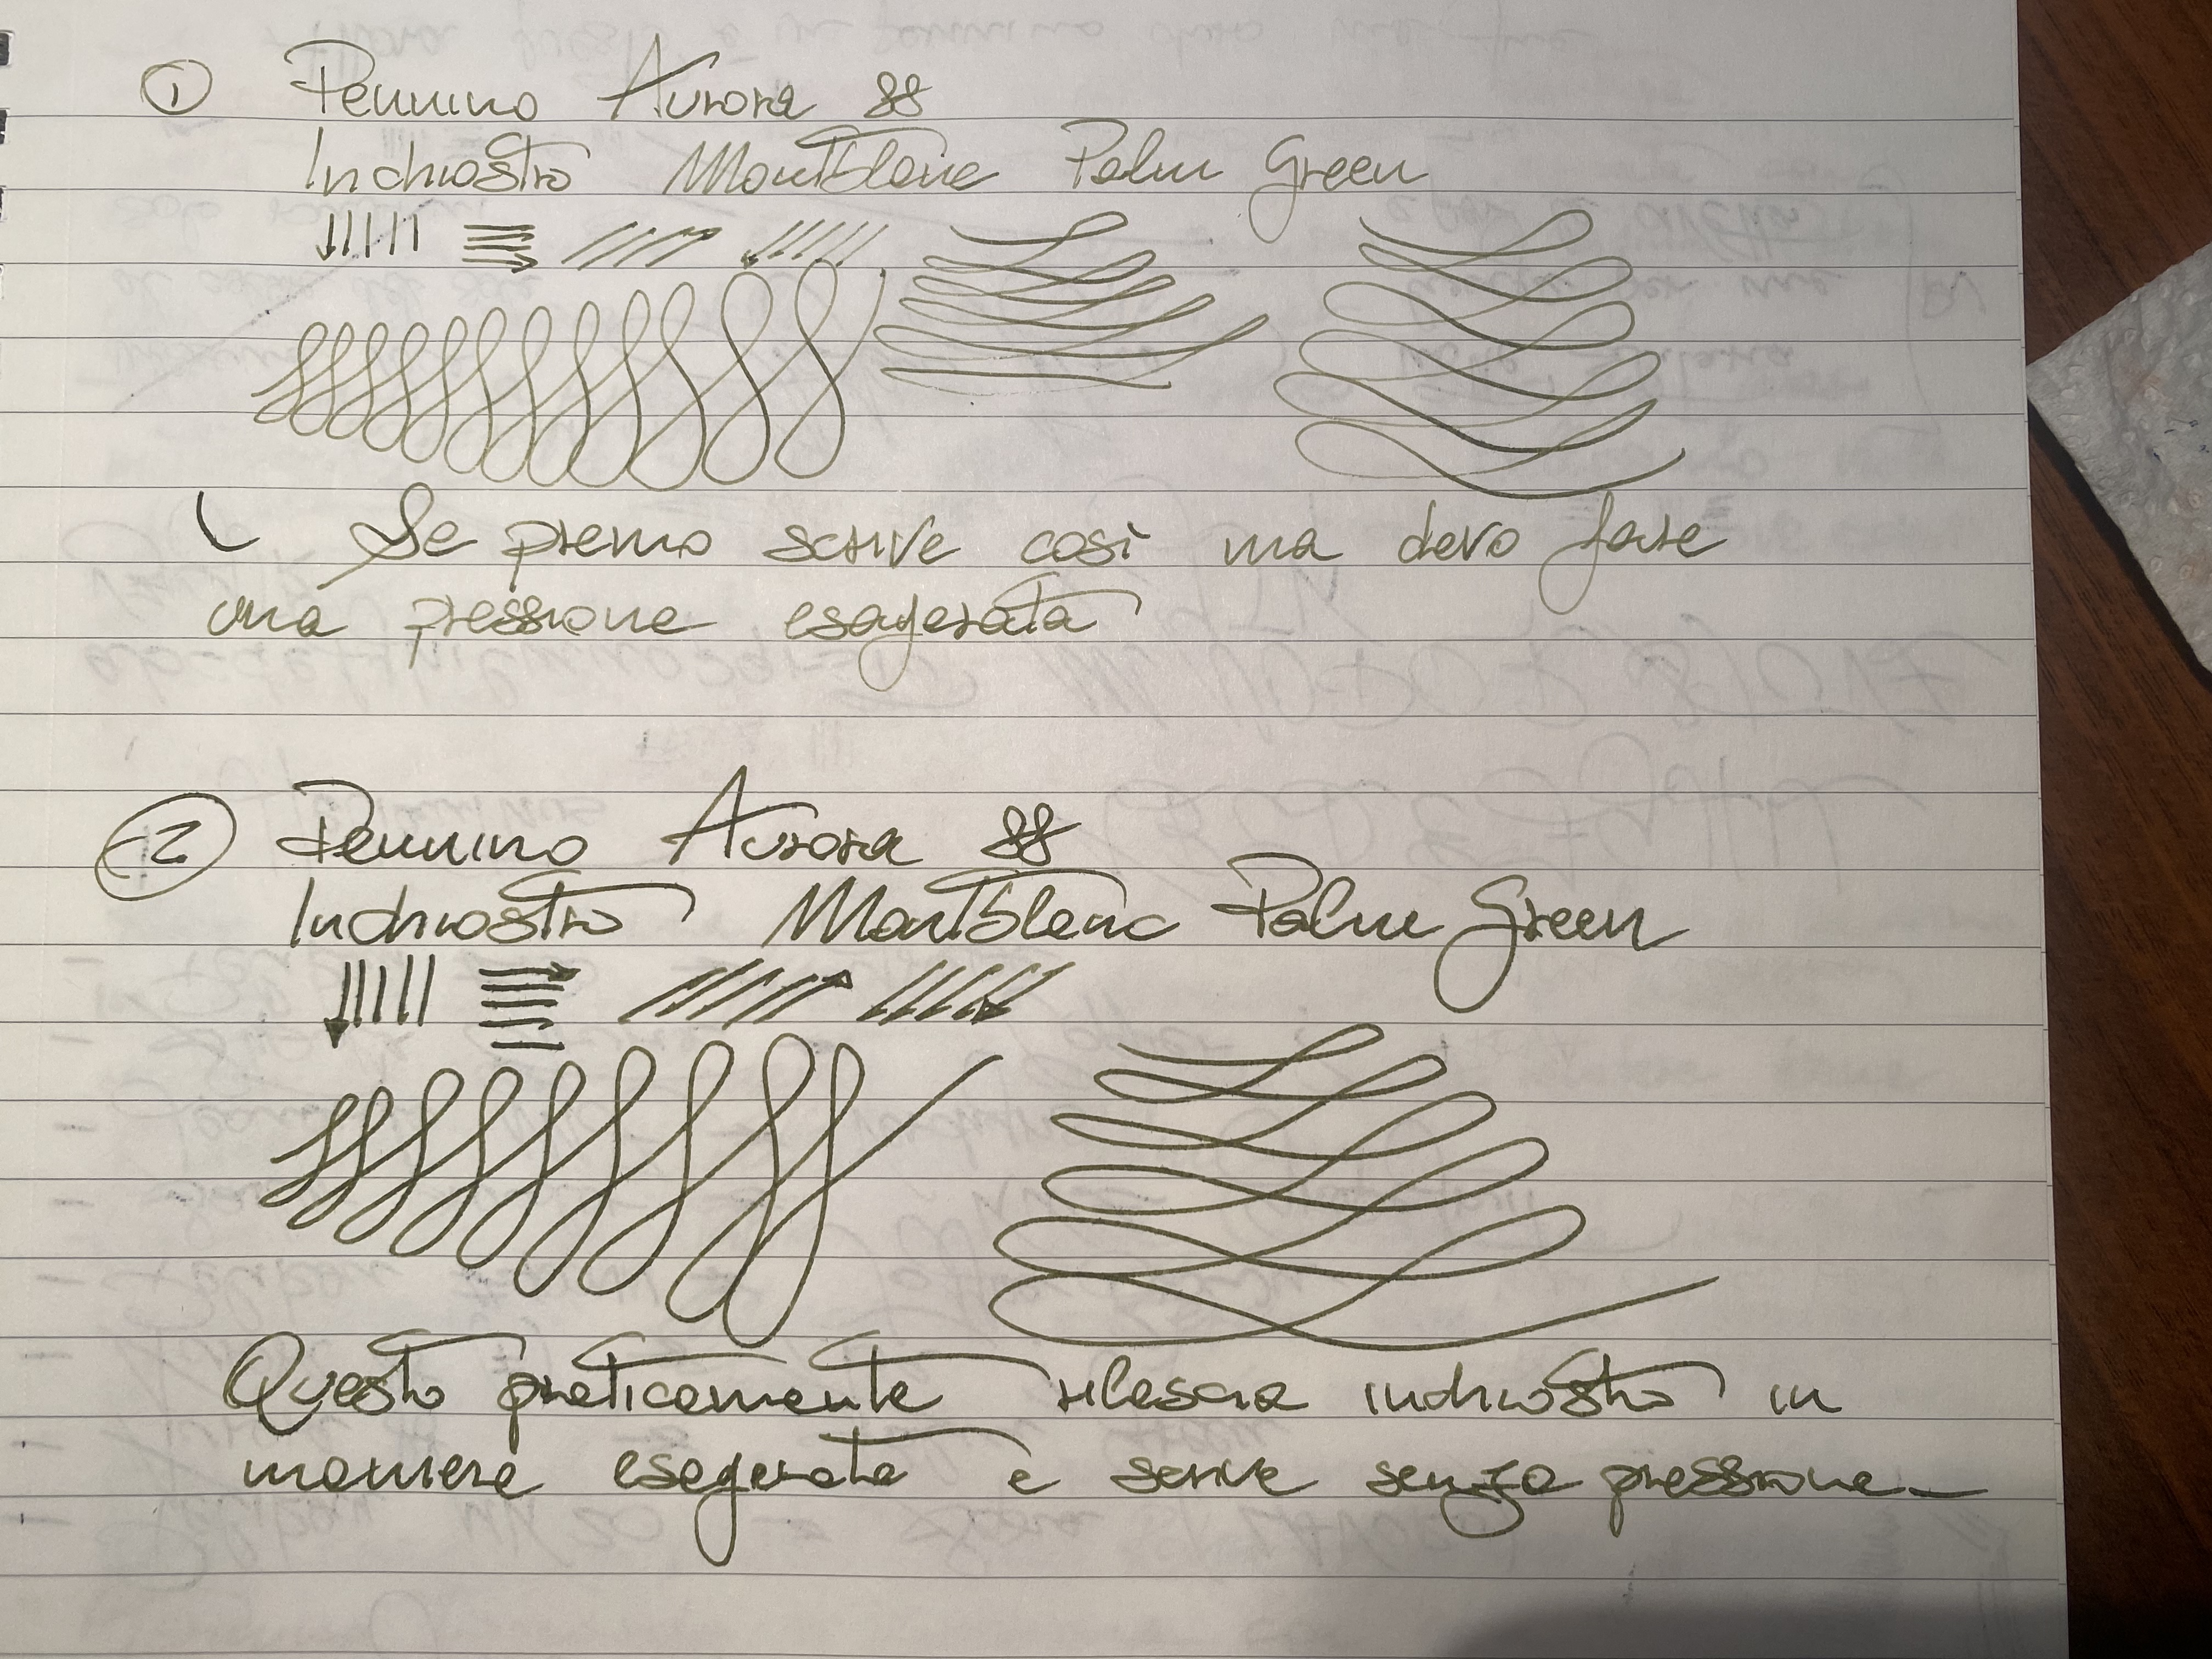 1 Pennino Aurora 88
Inchiostro Montblanc Palm Green
Se premo scrive così ma devo fare
una pressione esagerata
2 Pennino Aurora 88
Inchiostro Montblanc Palm Green
Questo praticamente rilascia inchiostro in
maniera esagerata e scrive senza pressione